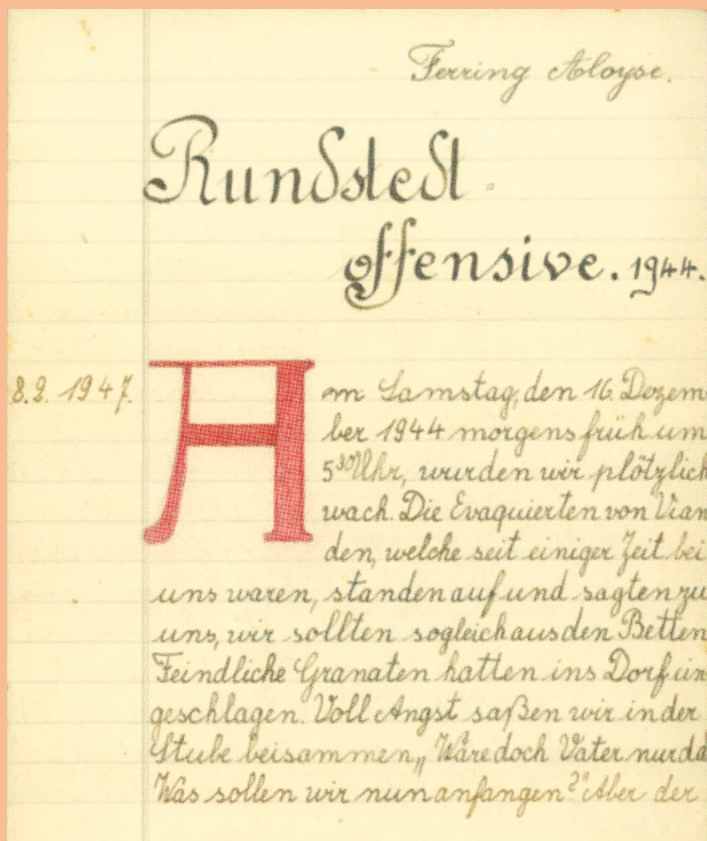 Ferring Aloyse.
Rundstedt-
offensive. 1944.
8.2. 1947.
Am Samstag, den 16. Dezem
ber 1944 morgens früh um
5³⁰ Uhr, wurden wir plötzlich
wach. Die Evaquierten von Vian
den, welche seit einiger Zeit bei
uns waren, standen auf und sagten zu
uns, wir sollten sogleich aus den Betten
Feindliche Granaten hatten ins Dorf ein
geschlagen. Voll Angst saßen wir in der
Stube beisammen „ Wäre doch Vater nur da
Was sollen wir nun anfangen?" Aber der